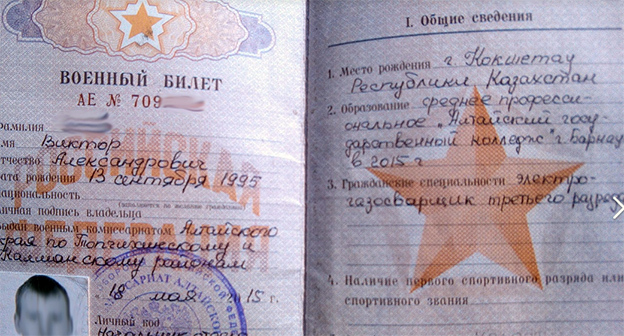 ВОЕННЫЙ БИЛЕТ
АЕ № 709
фамилия
мя Виктор
тчество Александрович
ата рождения 13 сентября 1995
ациональность
(заполняется по желанию гражданина)
ичная подпись владельца
ыдан военным комиссариатом Алтайского
края по Топчихинскому и
Калманскому районам
18 мая 2015 г.
Личный код
Начальник отдела
I. Общие сведения
1. Место рождения г. Кокшетау
Республики Казахстан
2. Образование среднее професси-
ональное „Алтайский госу-
дарственный колледж" г Барнау
в 2015 г
3. Гражданские специальности электро-
газосварщик третьего разряда
4. Наличие первого спортивного разряда или
спортивного звания